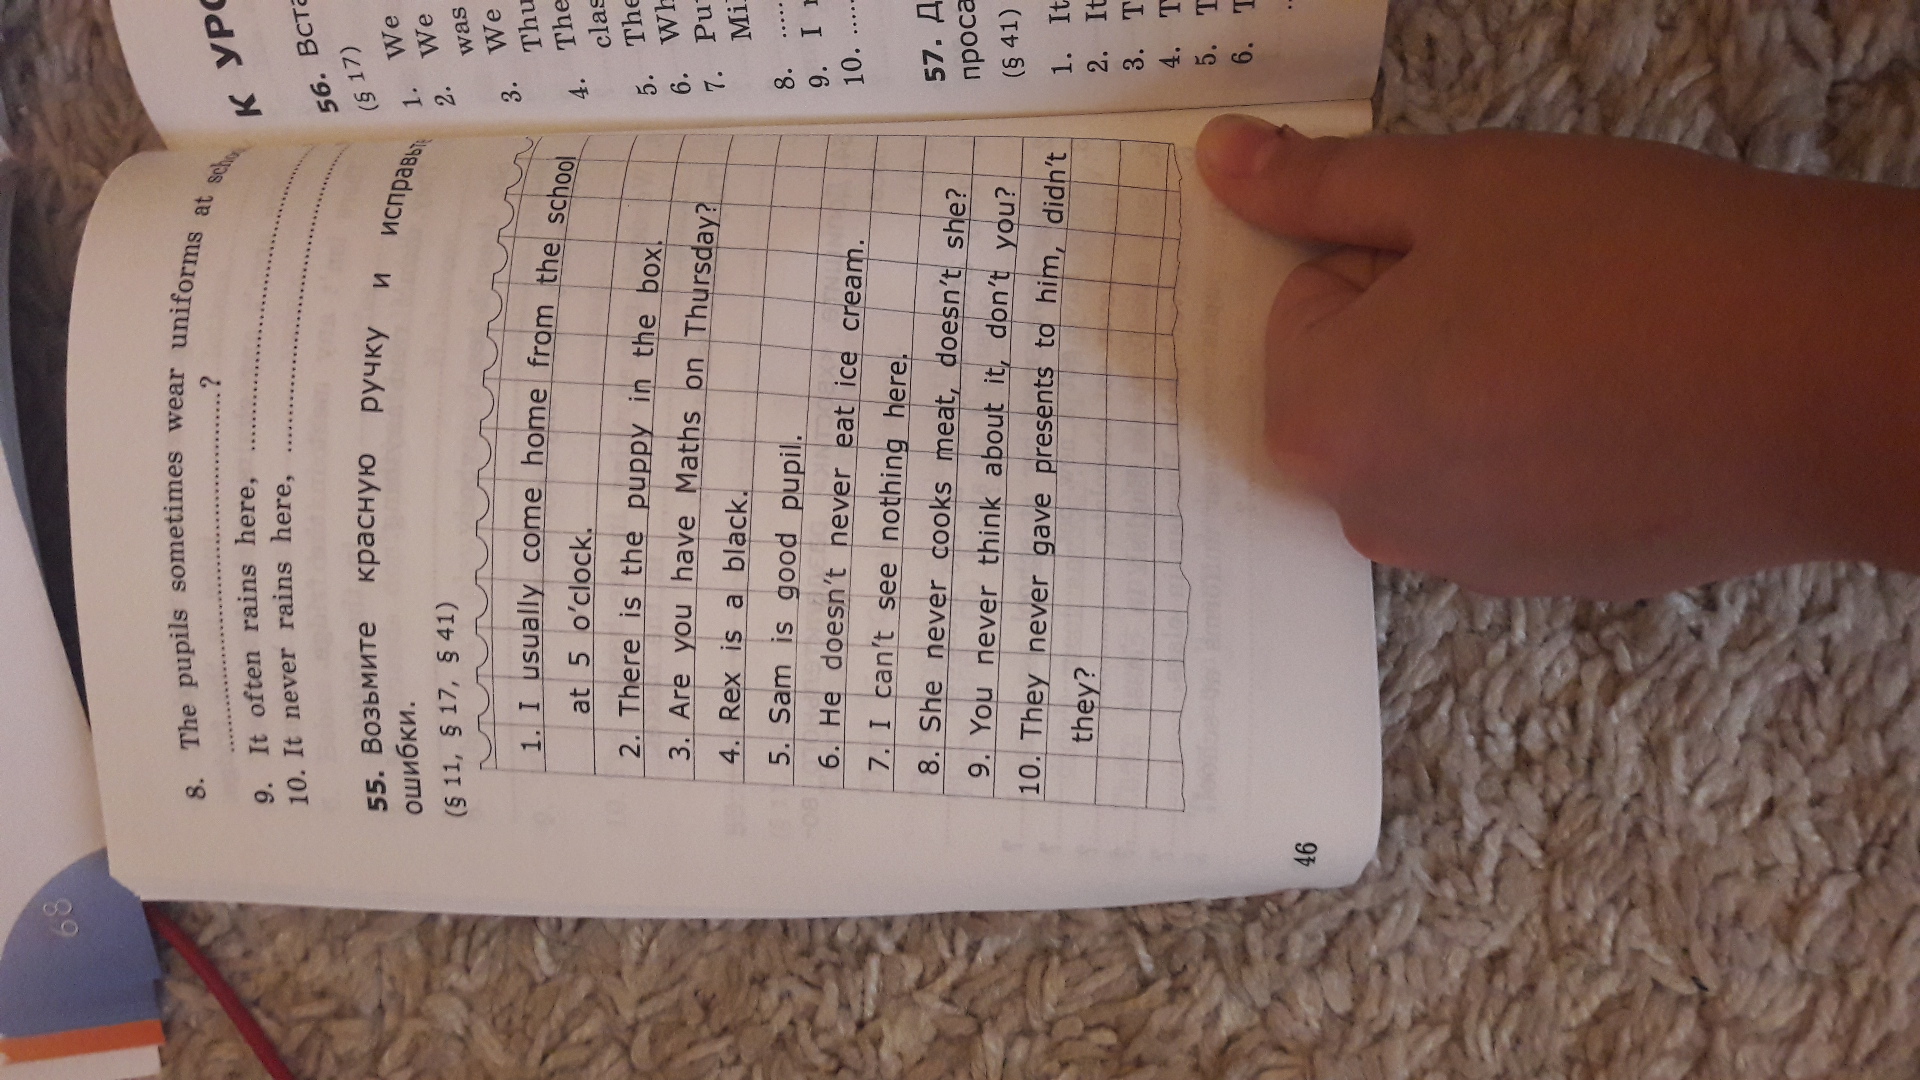 8. The pupils sometimes wear uniforms at
?
9. It often rains here,
10. It never rains here,
55. Возьмите красную ручку и исправьте
ошибки.
(§ 11, § 17, § 41)
1. I usually come home from the school
at 5 o'clock.
2. There is the puppy in the box.
3. Are you have Maths on Thursday?
4. Rex is a black.
5. Sam is good pupil.
6. He doesn't never eat ice cream.
7. I can't see nothing here.
8. She never cooks meat, doesn't she?
9. You never think about it, don't you?
10. They never gave presents to him, didn't
they?
46
К УРО
56. Вста
(§ 17)
1. We
2. We
was
3. We
Thu
4. The
clas
5. The
6. Wh
7. Pu
Mi
8.
9. I
10.
57. Д
проса
(§ 41)
1. It
2. It
3. T
4. T
5. T
6. T
68